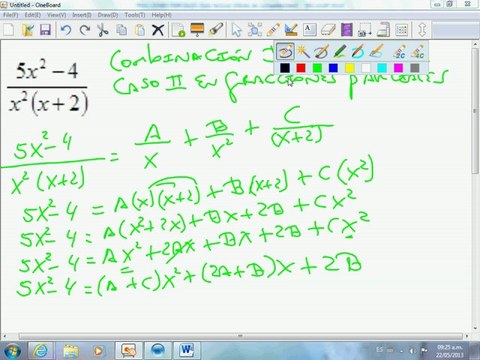 Untitled - OneBoard
Insert Format Tools Help
5x² - 4
x²(x+2)
COMBINACION
CASO II EN FRACCIONES PARCIALES
5x² - 4 / x²(x+2) = A/x + B/x² + C/(x+2)
5x² - 4 = A(x)(x+2) + B(x+2) + C(x²)
5x² - 4 = A(x²+2x) + Bx + 2B + Cx²
5x² - 4 = Ax² + 2Ax + Bx + 2B + Cx²
5x² - 4 = (A+C)x² + (2A+B)x + 2B
ES
09:25 a.m.
22/05/2013